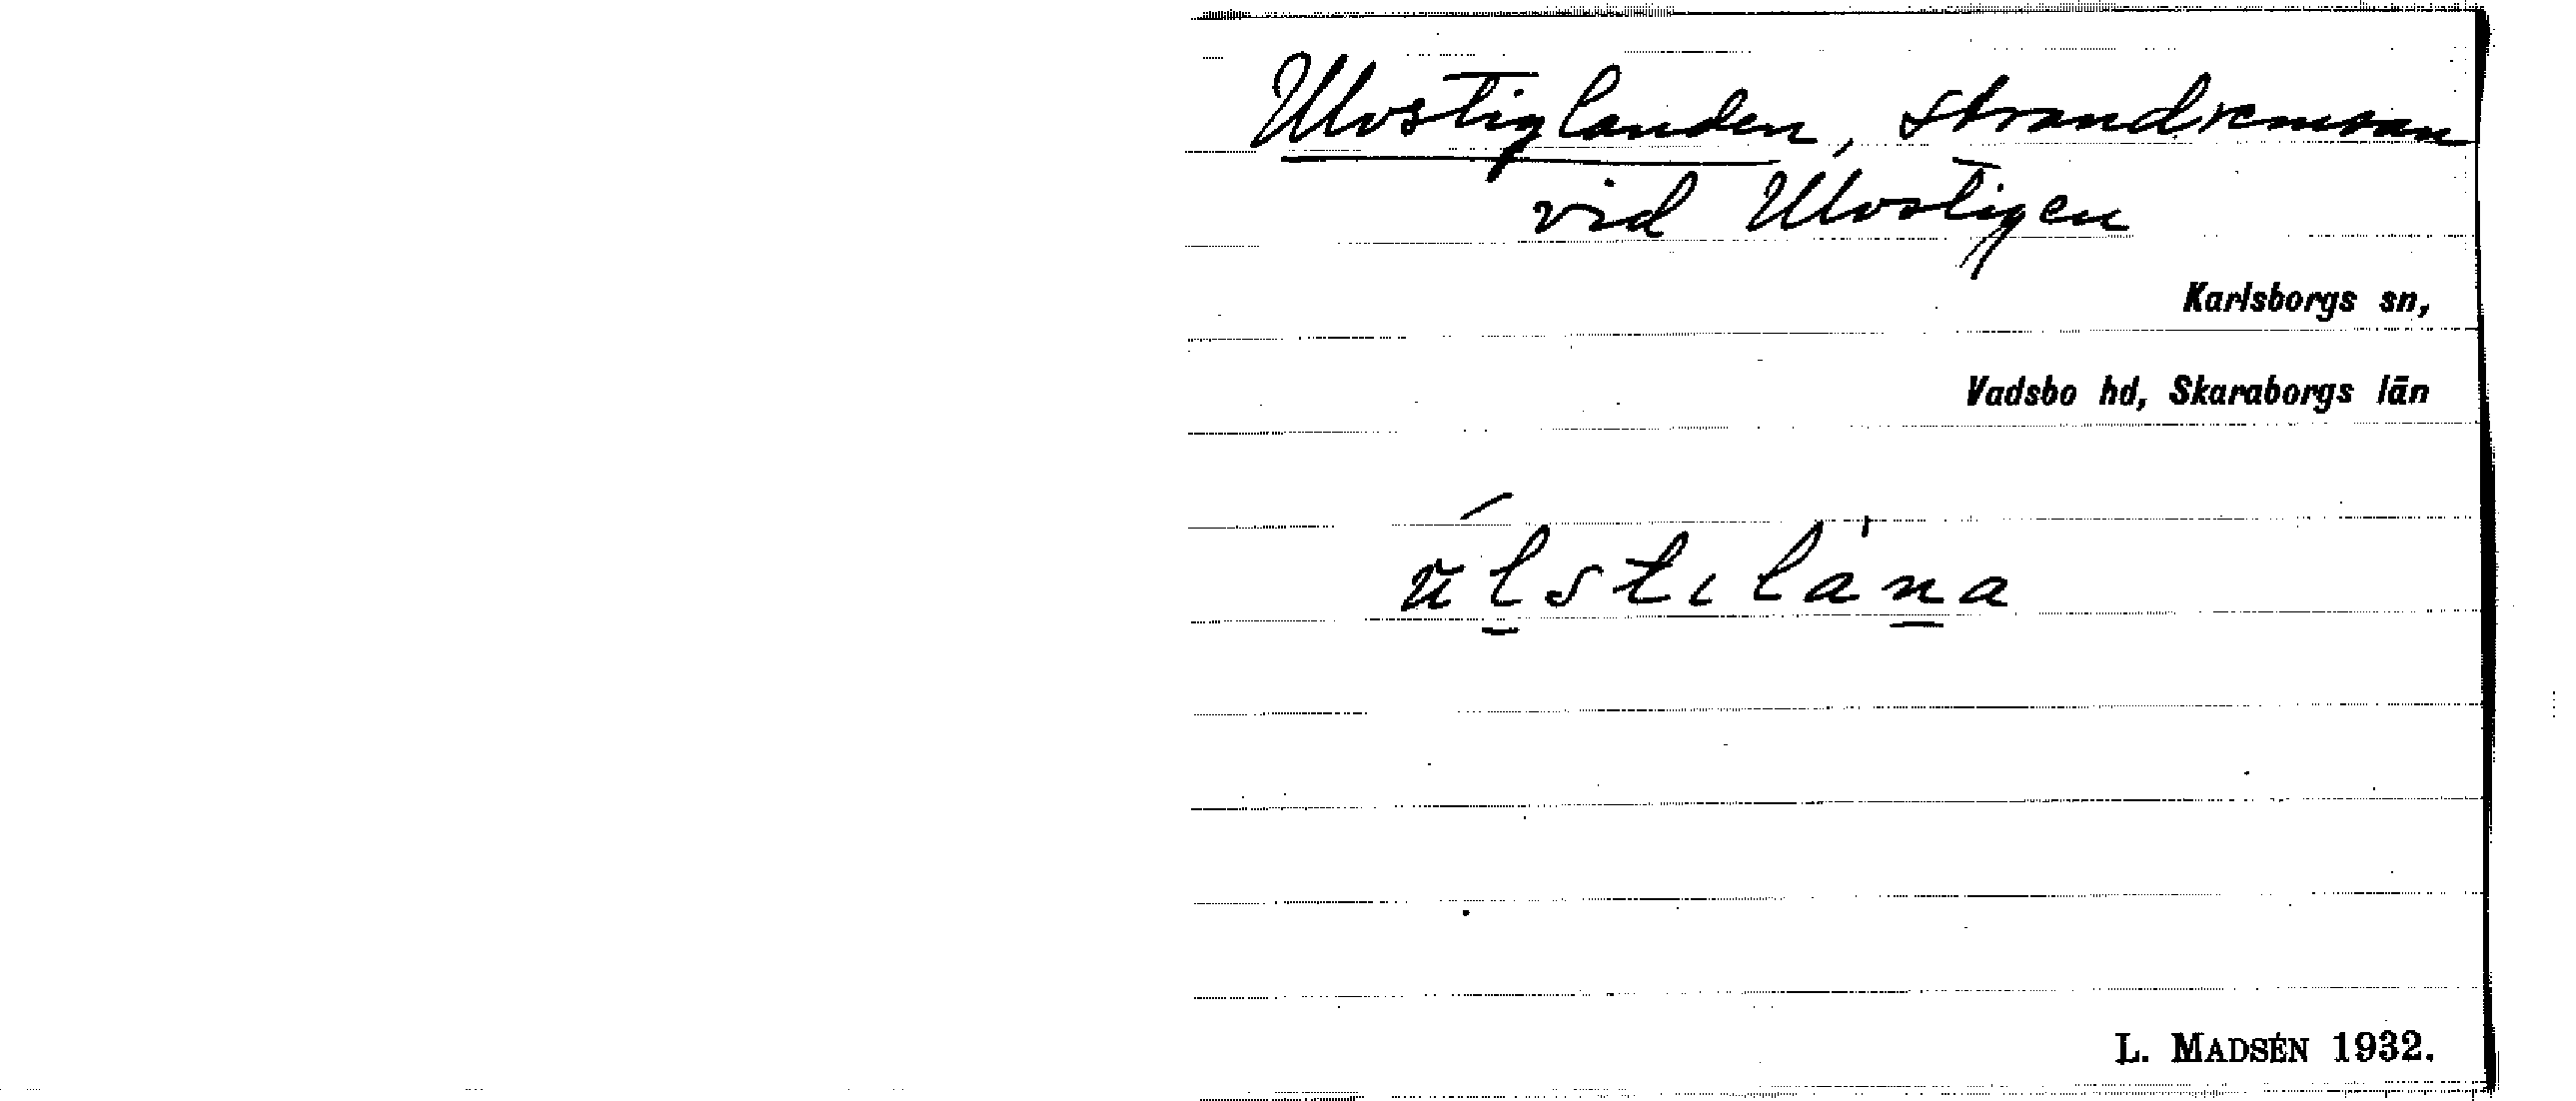 Ulvstiglanden, strandremsan
vid Ulvstigen
Karlsborgs sn,
Vadsbo hd, Skaraborgs län
úlstılána
L. MADSÉN 1932.